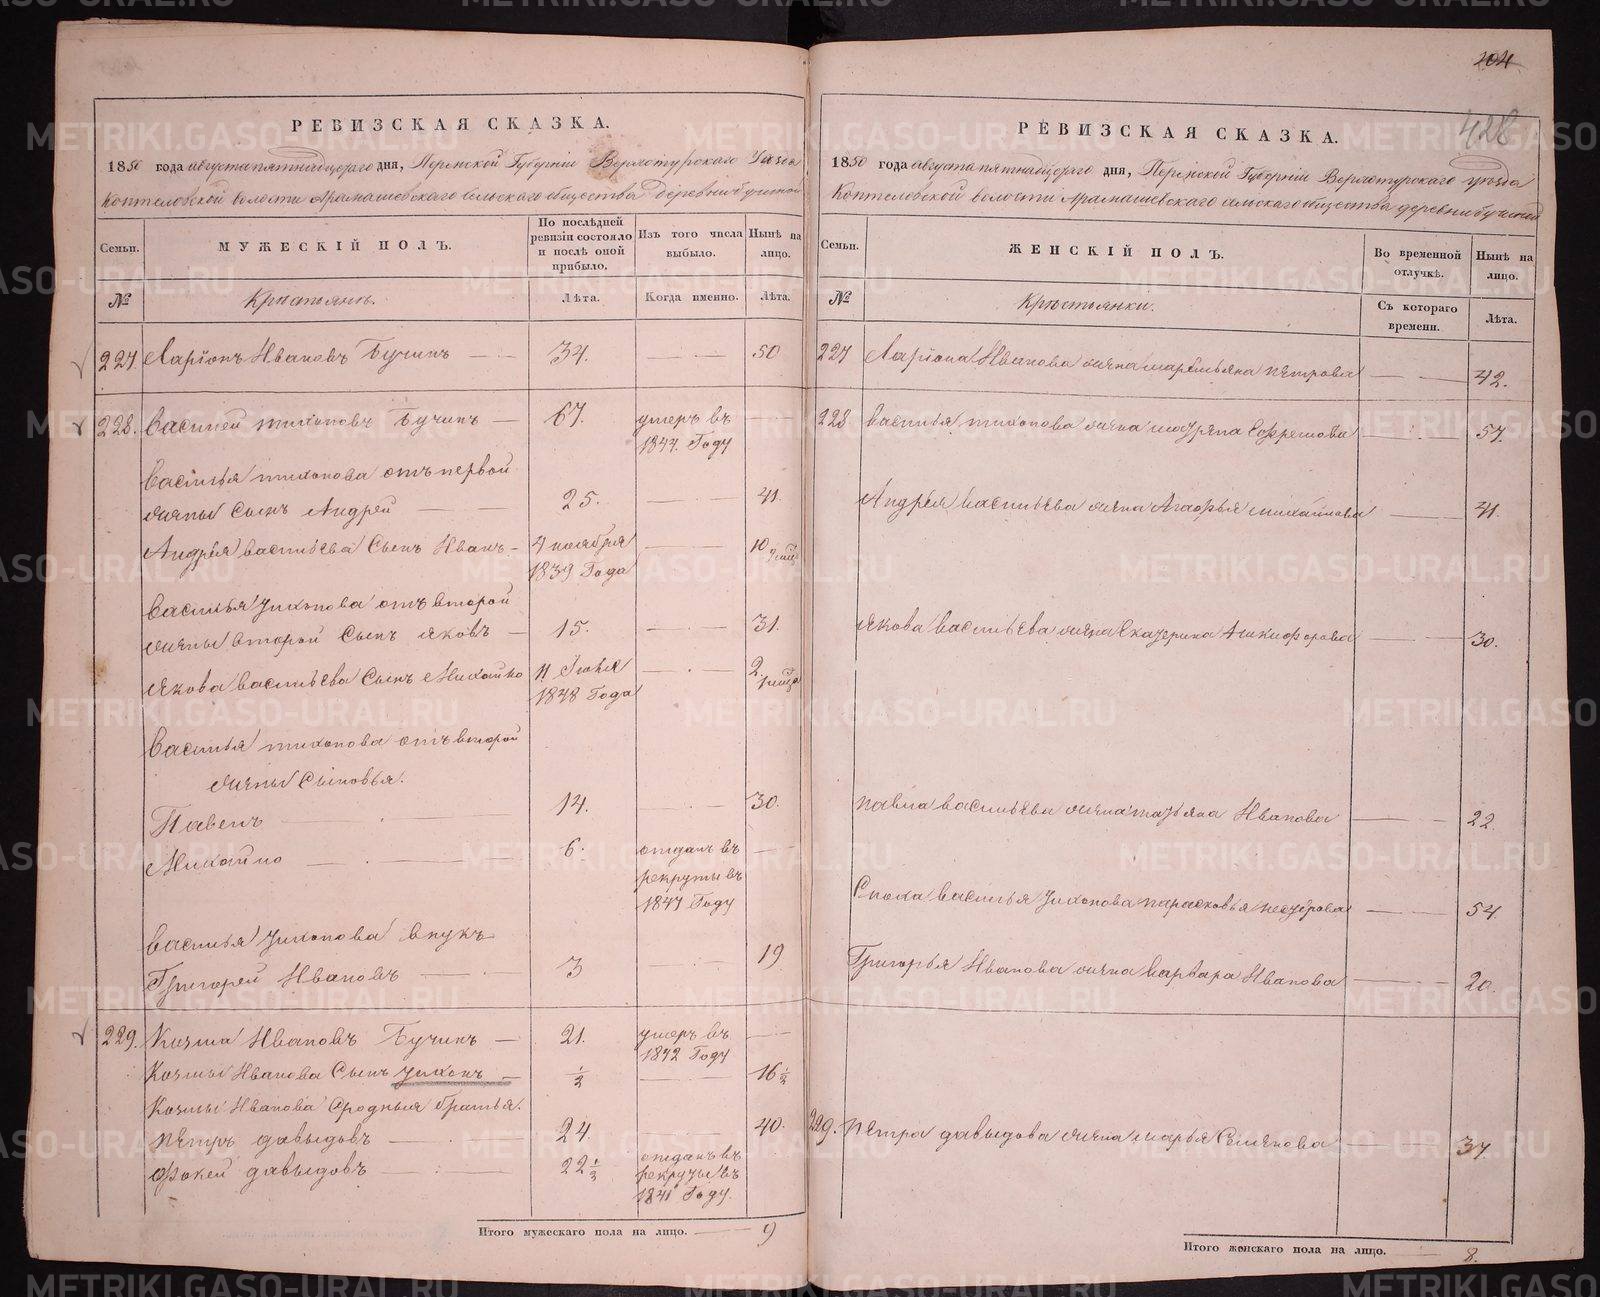 РЕВИЗСКАЯ СКАЗКА.
1850 года августа пятнадцатаго дня, Пермской Губернии Верхотурского Уезда
Коптеловской волости Арамашевского сельского общества деревни бучиной
Семьи.
МУЖЕСКІЙ ПОЛЪ.
По послѣдней ревизіи состояло и послѣ оной прибыло.
Изъ того числа выбыло.
Нынѣ на лицо.
№
Крестьянъ.
Лѣта.
Когда именно.
Лѣта.
227. Ларіонъ Ивановъ Бучинъ — 34. — 50
228. Василей тихоновъ Бучинъ — 67. умеръ въ 1847. Году
Василья тихонова отъ первой
жены Сынъ Андрей — 25. — 41.
Андрея васильева Сынъ Иванъ — 4 ноября 1839 Года — 10
Василья Тихонова отъ второй
жены второй Сынъ яковъ — 15. — 31.
Якова васильева Сынъ Михайло 11 Июня 1848 Года — 2
Василья тихонова отъ второй
жены Сыновья.
Павелъ — 14. — 30.
Михайло — 6. отданъ въ рекруты въ 1847 Году
Василья Тихонова внукъ
Григорей Ивановъ — 3 — 19
229. Козма Ивановъ Бучинъ — 21. умеръ въ 1842 Году
Козмы Иванова Сынъ Тихонъ — 1/2 — 16 1/2
Козмы Иванова Сродныя братья.
Петръ давыдовъ — 24. — 40.
Фокей давыдовъ — 22 1/2 отданъ въ рекруты въ 1841 Году.
Итого мужескаго пола на лицо. — 9
204
428
РЕВИЗСКАЯ СКАЗКА.
1850 года августа пятнадцатаго дня, Пермской Губернии Верхотурского уезда
Коптеловской волости Арамашевского сельского общества деревни бучиной
Семьи.
ЖЕНСКІЙ ПОЛЪ.
Во временной отлучкѣ.
Нынѣ на лицо.
№
Крестьянки.
Съ котораго времени.
Лѣта.
227 Ларіона Иванова жена маремьяна петрова — 42.
228 Василья тихонова жена матрена — 57.
Андрея васильева жена Агафья михайлова — 41.
Якова васильева жена Екатерина — 30.
павла васильева жена татьяна Иванова — 22
Сноха василья Тихонова парасковья — 54.
Григорья Иванова жена варвара Иванова — 20.
229. Петра давыдова жена марья Семенова — 37
Итого женскаго пола на лицо. — 8.
METRIKI.GASO-URAL.RU